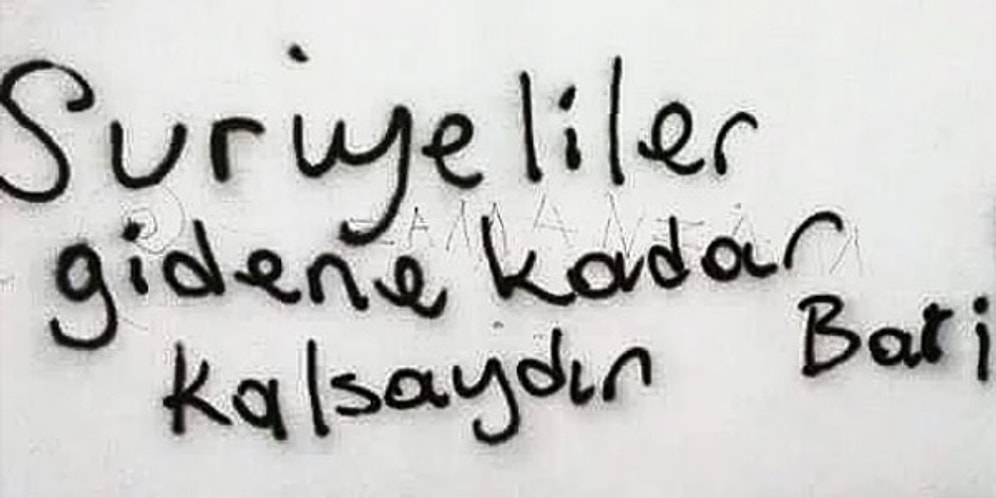 Suriyeliler
gidene kadar
kalsaydın Bari